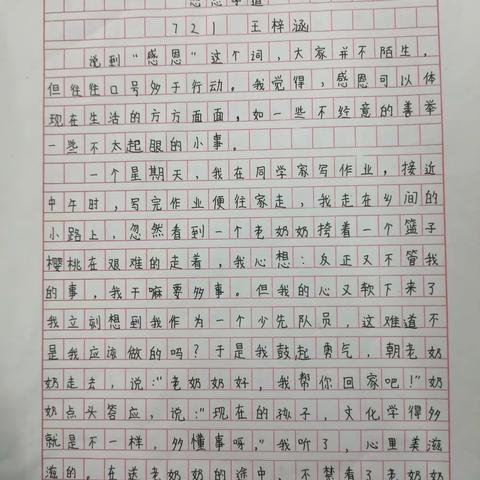 721 王梓涵
说到“感恩”这个词，大家并不陌生，
但往往口号多于行动。我觉得，感恩可以体
现在生活的方方面面，如一些不经意的善举
一些不太起眼的小事。
一个星期天，我在同学家写作业，接近
中午时，写完作业便往家走，我走在乡间的
小路上，忽然看到一个老奶奶挎着一个篮子
樱桃在艰难的走着，我心想：反正又不管我
的事，我干嘛要多事。但我的心又软下来了
我立刻想到我作为一个少先队员，这难道不
是我应该做的吗？于是我鼓起勇气，朝老奶
奶走去，说：“老奶奶好，我帮你回家吧！”奶
奶点头答应，说：“现在的孩子，文化学得多
就是不一样，多懂事呀。”我听了，心里美滋
滋的。在送老奶奶的途中，不禁看了老奶奶